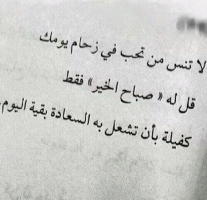 لا تنس من تحب في زحام يومك
قل له « صباح الخير » فقط
كفيلة بأن تشعل به السعادة بقية اليوم.